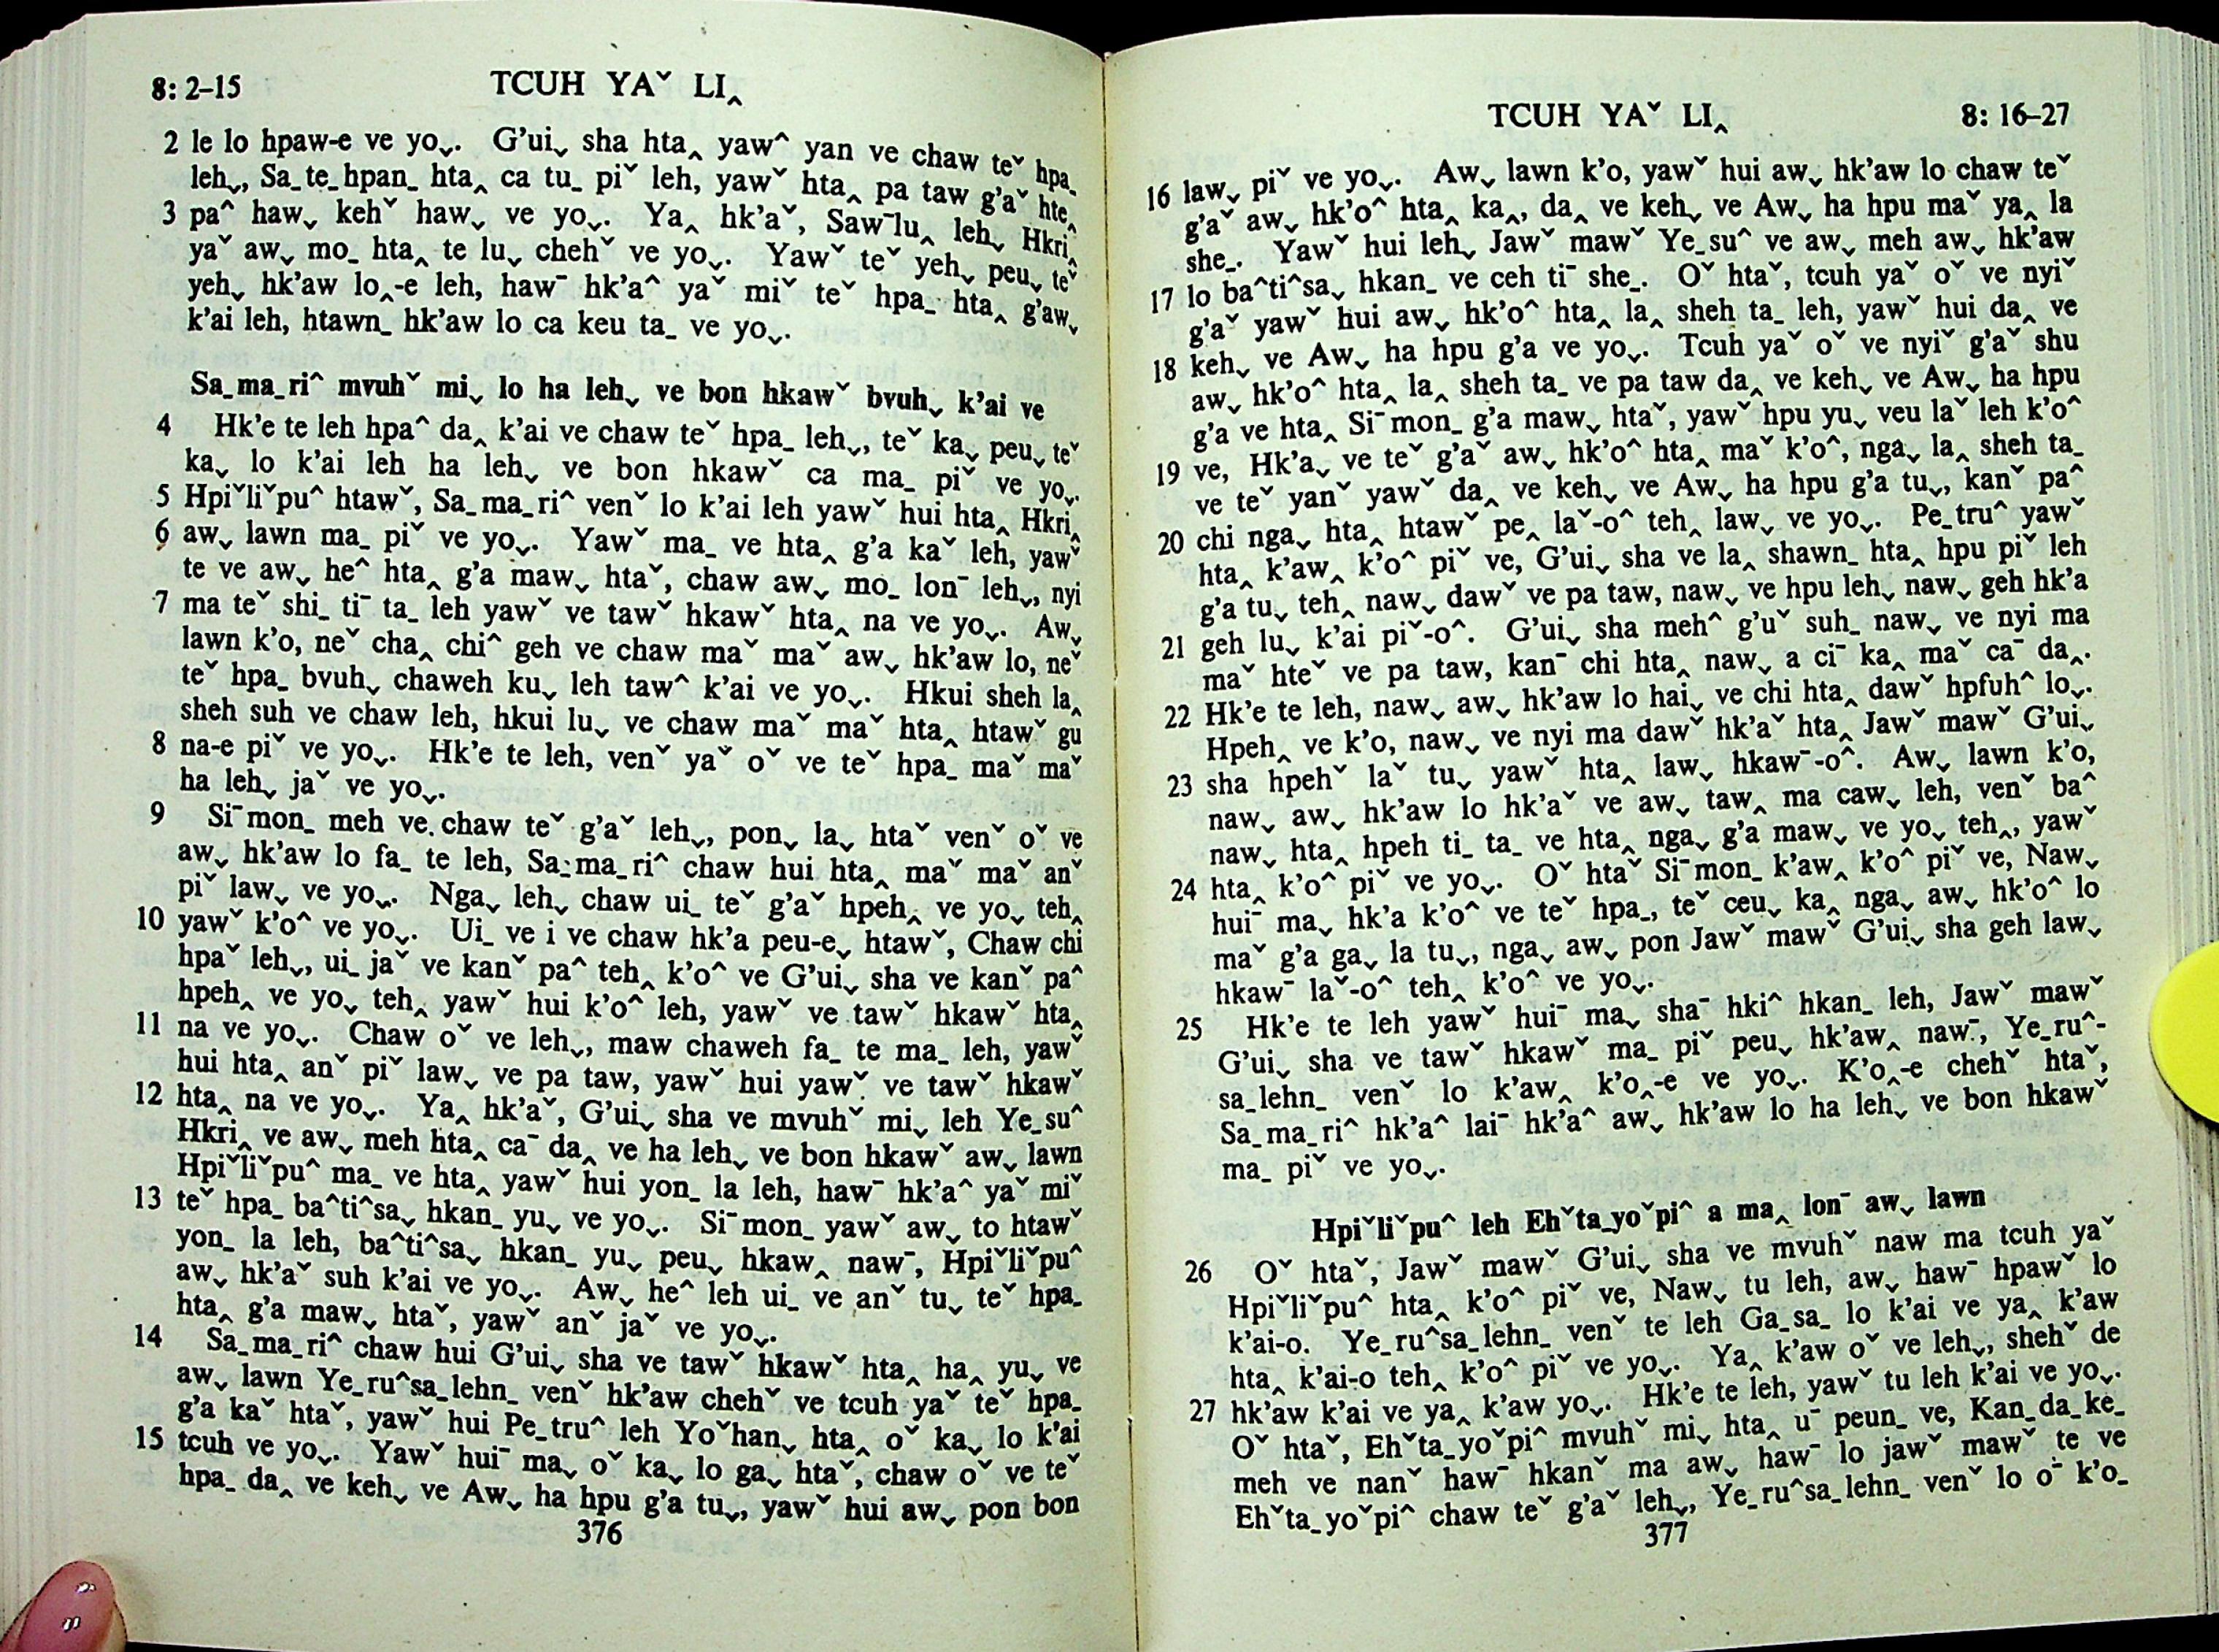 8: 2–15
TCUH YAˇ LI‸
2 le lo hpaw-e ve yoˬ. G’uiˬ sha hta‸ yaw^ yan ve chaw teˇ hpa_
lehˬ, Sa_te_hpan_ hta‸ ca tu_ piˇ leh, yawˇ hta‸ pa taw g’aˇ hte‸
3 pa^ hawˬ kehˇ hawˬ ve yoˬ. Ya‸ hk’aˇ, Saw¯lu‸ lehˬ Hkri‸
yaˇ awˬ mo_ hta‸ te luˬ chehˇ ve yoˬ. Yawˇ teˇ yehˬ peuˬ teˇ
yehˬ hk’aw lo‸-e leh, haw¯ hk’a^ yaˇ miˇ teˇ hpa_ hta‸ g’awˬ
k’ai leh, htawn_ hk’aw lo ca keu ta_ ve yoˬ.
Sa_ma_ri^ mvuhˇ miˬ lo ha lehˬ ve bon hkawˇ bvuhˬ k’ai ve
4 Hk’e te leh hpa^ da‸ k’ai ve chaw teˇ hpa_ lehˬ, teˇ kaˬ peuˬ teˇ
kaˬ lo k’ai leh ha lehˬ ve bon hkawˇ ca ma_ piˇ ve yoˬ.
5 Hpiˇliˇpu^ htawˇ, Sa_ma_ri^ venˇ lo k’ai leh yawˇ hui hta‸ Hkri‸
6 awˬ lawn ma_ piˇ ve yoˬ. Yawˇ ma_ ve hta‸ g’a kaˇ leh, yawˇ
te ve awˬ he^ hta‸ g’a mawˬ htaˇ, chaw awˬ mo_ lon¯ lehˬ, nyi
7 ma teˇ shi_ ti¯ ta_ leh yawˇ ve tawˇ hkawˇ hta‸ na ve yoˬ. Awˬ
lawn k’o, neˇ cha‸ chi^ geh ve chaw maˇ maˇ awˬ hk’aw lo, neˇ
teˇ hpa_ bvuhˬ chaweh kuˬ leh taw^ k’ai ve yoˬ. Hkui sheh la‸
sheh suh ve chaw leh, hkui luˬ ve chaw maˇ maˇ hta‸ htawˇ gu
8 na-e piˇ ve yoˬ. Hk’e te leh, venˇ yaˇ oˇ ve teˇ hpa_ maˇ maˇ
ha lehˬ jaˇ ve yoˬ.
9 Si¯mon_ meh ve chaw teˇ g’aˇ lehˬ, ponˬ laˬ htaˇ venˇ oˇ ve
awˬ hk’aw lo fa_ te leh, Sa_ma_ri^ chaw hui hta‸ maˇ maˇ anˇ
piˇ lawˬ ve yoˬ. Ngaˬ lehˬ chaw ui_ teˇ g’aˇ hpeh‸ ve yoˬ teh‸
10 yawˇ k’o^ ve yoˬ. Ui_ ve i ve chaw hk’a peu-eˬ htawˇ, Chaw chi
hpaˇ lehˬ, ui_ jaˇ ve kanˇ pa^ teh‸ k’o^ ve G’uiˬ sha ve kanˇ pa^
hpeh‸ ve yoˬ teh‸ yawˇ hui k’o^ leh, yawˇ ve tawˇ hkawˇ hta‸
11 na ve yoˬ. Chaw oˇ ve lehˬ, maw chaweh fa_ te ma_ leh, yawˇ
hui hta‸ anˇ piˇ lawˬ ve pa taw, yawˇ hui yawˇ ve tawˇ hkawˇ
12 hta‸ na ve yoˬ. Ya‸ hk’aˇ, G’uiˬ sha ve mvuhˇ miˬ leh Ye_su^
Hkri‸ ve awˬ meh hta‸ ca¯ da‸ ve ha lehˬ ve bon hkawˇ awˬ lawn
Hpiˇliˇpu^ ma_ ve hta‸ yawˇ hui yon_ la leh, haw¯ hk’a^ yaˇ miˇ
13 teˇ hpa_ ba^ti^saˬ hkan_ yuˬ ve yoˬ. Si¯mon_ yawˇ awˬ to htawˇ
yon_ la leh, ba^ti^saˬ hkan_ yuˬ peuˬ hkaw‸ naw¯, Hpiˇliˇpu^
awˬ hk’aˇ suh k’ai ve yoˬ. Awˬ he^ leh ui_ ve anˇ tuˬ teˇ hpa_
hta‸ g’a mawˬ htaˇ, yawˇ anˇ jaˇ ve yoˬ.
14 Sa_ma_ri^ chaw hui G’uiˬ sha ve tawˇ hkawˇ hta‸ ha‸ yuˬ ve
awˬ lawn Ye_ru^sa_lehn_ venˇ hk’aw chehˇ ve tcuh yaˇ teˇ hpa_
g’a kaˇ htaˇ, yawˇ hui Pe_tru^ leh Yoˇhanˬ hta‸ oˇ kaˬ lo k’ai
15 tcuh ve yoˬ. Yawˇ hui¯ maˬ oˇ kaˬ lo gaˬ htaˇ, chaw oˇ ve teˇ
hpa_ da‸ ve kehˬ ve Awˬ ha hpu g’a tuˬ, yawˇ hui awˬ pon bon
376
TCUH YAˇ LI‸
8: 16–27
16 lawˬ piˇ ve yoˬ. Awˬ lawn k’o, yawˇ hui awˬ hk’aw lo chaw teˇ
g’aˇ awˬ hk’o^ hta‸ ka‸, da‸ ve kehˬ ve Awˬ ha hpu maˇ ya‸ la
she_. Yawˇ hui lehˬ Jawˇ mawˇ Ye_su^ ve awˬ meh awˬ hk’aw
17 lo ba^ti^saˬ hkan_ ve ceh ti¯ she_. Oˇ htaˇ, tcuh yaˇ oˇ ve nyiˇ
g’aˇ yawˇ hui awˬ hk’o^ hta‸ la‸ sheh ta_ leh, yawˇ hui da‸ ve
18 kehˬ ve Awˬ ha hpu g’a ve yoˬ. Tcuh yaˇ oˇ ve nyiˇ g’aˇ shu
awˬ hk’o^ hta‸ la‸ sheh ta_ ve pa taw da‸ ve kehˬ ve Awˬ ha hpu
g’a ve hta‸ Si¯mon_ g’a mawˬ htaˇ, yawˇ hpu yuˬ veu laˇ leh k’o^
19 ve, Hk’aˬ ve teˇ g’aˇ awˬ hk’o^ hta‸ maˇ k’o^, ngaˬ la‸ sheh ta_
ve teˇ yanˇ yawˇ da‸ ve kehˬ ve Awˬ ha hpu g’a tuˬ, kanˇ pa^
20 chi ngaˬ hta‸ htawˇ pe‸ laˇ-o^ teh‸ lawˬ ve yoˬ. Pe_tru^ yawˇ
hta‸ k’aw‸ k’o^ piˇ ve, G’uiˬ sha ve la‸ shawn_ hta‸ hpu piˇ leh
g’a tuˬ teh‸ nawˬ dawˇ ve pa taw, nawˬ ve hpu lehˬ nawˬ geh hk’a
21 geh luˬ k’ai piˇ-o^. G’uiˬ sha meh^ g’uˇ suh_ nawˬ ve nyi ma
maˇ hteˇ ve pa taw, kan¯ chi hta‸ nawˬ a ci¯ ka‸ maˇ ca¯ da‸.
22 Hk’e te leh, nawˬ awˬ hk’aw lo haiˬ ve chi hta‸ dawˇ hpfuh^ loˬ.
Hpeh‸ ve k’o, nawˬ ve nyi ma dawˇ hk’aˇ hta‸ Jawˇ mawˇ G’uiˬ
23 sha hpehˇ laˇ tuˬ yawˇ hta‸ lawˬ hkaw¯-o^. Awˬ lawn k’o,
nawˬ awˬ hk’aw lo hk’aˇ ve awˬ taw‸ ma cawˬ leh, venˇ ba^
nawˬ hta‸ hpeh ti_ ta_ ve hta‸ ngaˬ g’a mawˬ ve yoˬ teh‸, yawˇ
24 hta‸ k’o^ piˇ ve yoˬ. Oˇ htaˇ Si¯mon_ k’aw‸ k’o^ piˇ ve, Nawˬ
hui¯ maˬ hk’a k’o^ ve teˇ hpa_, teˇ ceuˬ ka‸ ngaˬ awˬ hk’o^ lo
maˇ g’a gaˬ la tuˬ, ngaˬ awˬ pon Jawˇ mawˇ G’uiˬ sha geh lawˬ
hkaw¯ laˇ-o^ teh‸ k’o^ ve yoˬ.
25 Hk’e te leh yawˇ hui¯ maˬ sha¯ hki^ hkan_ leh, Jawˇ mawˇ
G’uiˬ sha ve tawˇ hkawˇ ma_ piˇ peuˬ hk’aw‸ naw¯, Ye_ru^-
sa_lehn_ venˇ lo k’aw‸ k’o‸-e ve yoˬ. K’o‸-e chehˇ htaˇ,
Sa_ma_ri^ hk’a^ lai¯ hk’a^ awˬ hk’aw lo ha lehˬ ve bon hkawˇ
ma_ piˇ ve yoˬ.
Hpiˇliˇpu^ leh Ehˇta_yoˇpi^ a ma‸ lon¯ awˬ lawn
26 Oˇ htaˇ, Jawˇ mawˇ G’uiˬ sha ve mvuhˇ naw ma tcuh yaˇ
Hpiˇliˇpu^ hta‸ k’o^ piˇ ve, Nawˬ tu leh, awˬ haw¯ hpawˇ lo
k’ai-o. Ye_ru^sa_lehn_ venˇ te leh Ga_sa_ lo k’ai ve ya‸ k’aw
hta‸ k’ai-o teh‸ k’o^ piˇ ve yoˬ. Ya‸ k’aw oˇ ve lehˬ, shehˇ de
27 hk’aw k’ai ve ya‸ k’aw yoˬ. Hk’e te leh, yawˇ tu leh k’ai ve yoˬ.
Oˇ htaˇ, Ehˇta_yoˇpi^ mvuhˇ miˬ hta‸ u¯ peun_ ve, Kan_da_ke_
meh ve nanˇ haw¯ hkanˇ ma awˬ haw¯ lo jawˇ mawˇ te ve
Ehˇta_yoˇpi^ chaw teˇ g’aˇ lehˬ, Ye_ru^sa_lehn_ venˇ lo o¯ k’o_
377